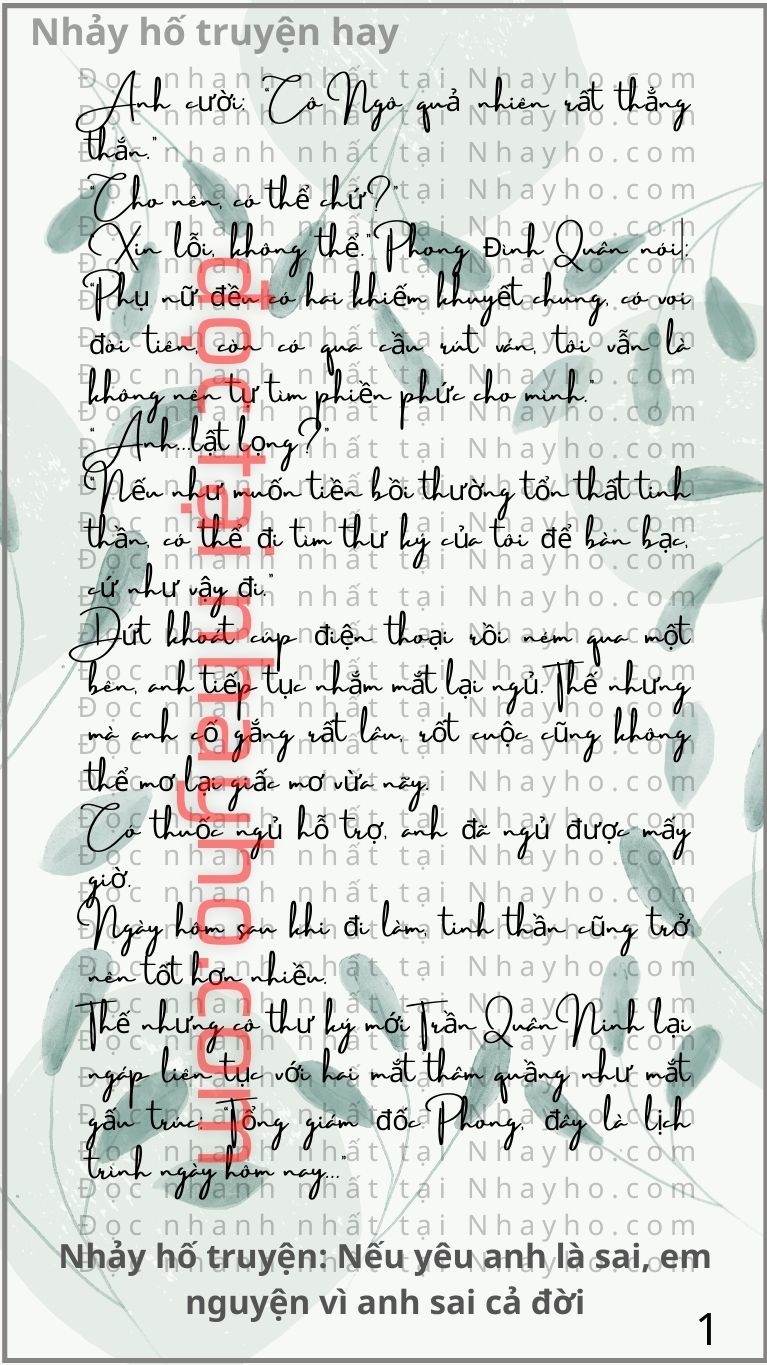 Nhảy hố truyện hay
Anh cười: "Cô Ngô quả nhiên rất thẳng
thắn."
"Cho nên, có thể chứ?"
"Xin lỗi, không thể." Phong Đình Quân nói:
"Phụ nữ đều có hai khiếm khuyết chung, có voi
đòi tiên, còn có qua cầu rút ván, tôi vẫn là
không nên tự tìm phiền phức cho mình."
"Anh...lật lọng?"
"Nếu như muốn tiền bồi thường tổn thất tinh
thần, có thể đi tìm thư ký của tôi để bàn bạc,
cứ như vậy đi."
Dứt khoát cúp điện thoại rồi ném qua một
bên, anh tiếp tục nhắm mắt lại ngủ. Thế nhưng
mà anh cố gắng rất lâu, rốt cuộc cũng không
thể mơ lại giấc mơ vừa nãy.
Có thuốc ngủ hỗ trợ, anh đã ngủ được mấy
giờ.
Ngày hôm sau khi đi làm, tinh thần cũng trở
nên tốt hơn nhiều.
Thế nhưng cô thư ký mới Trần Quân Ninh lại
ngáp liên tục với hai mắt thâm quầng như mắt
gấu trúc: "Tổng giám đốc Phong, đây là lịch
trình ngày hôm nay..."
đọc tại nhayho.com
Đọc nhanh nhất tại Nhayho.com
Nhảy hố truyện: Nếu yêu anh là sai, em
nguyện vì anh sai cả đời
1